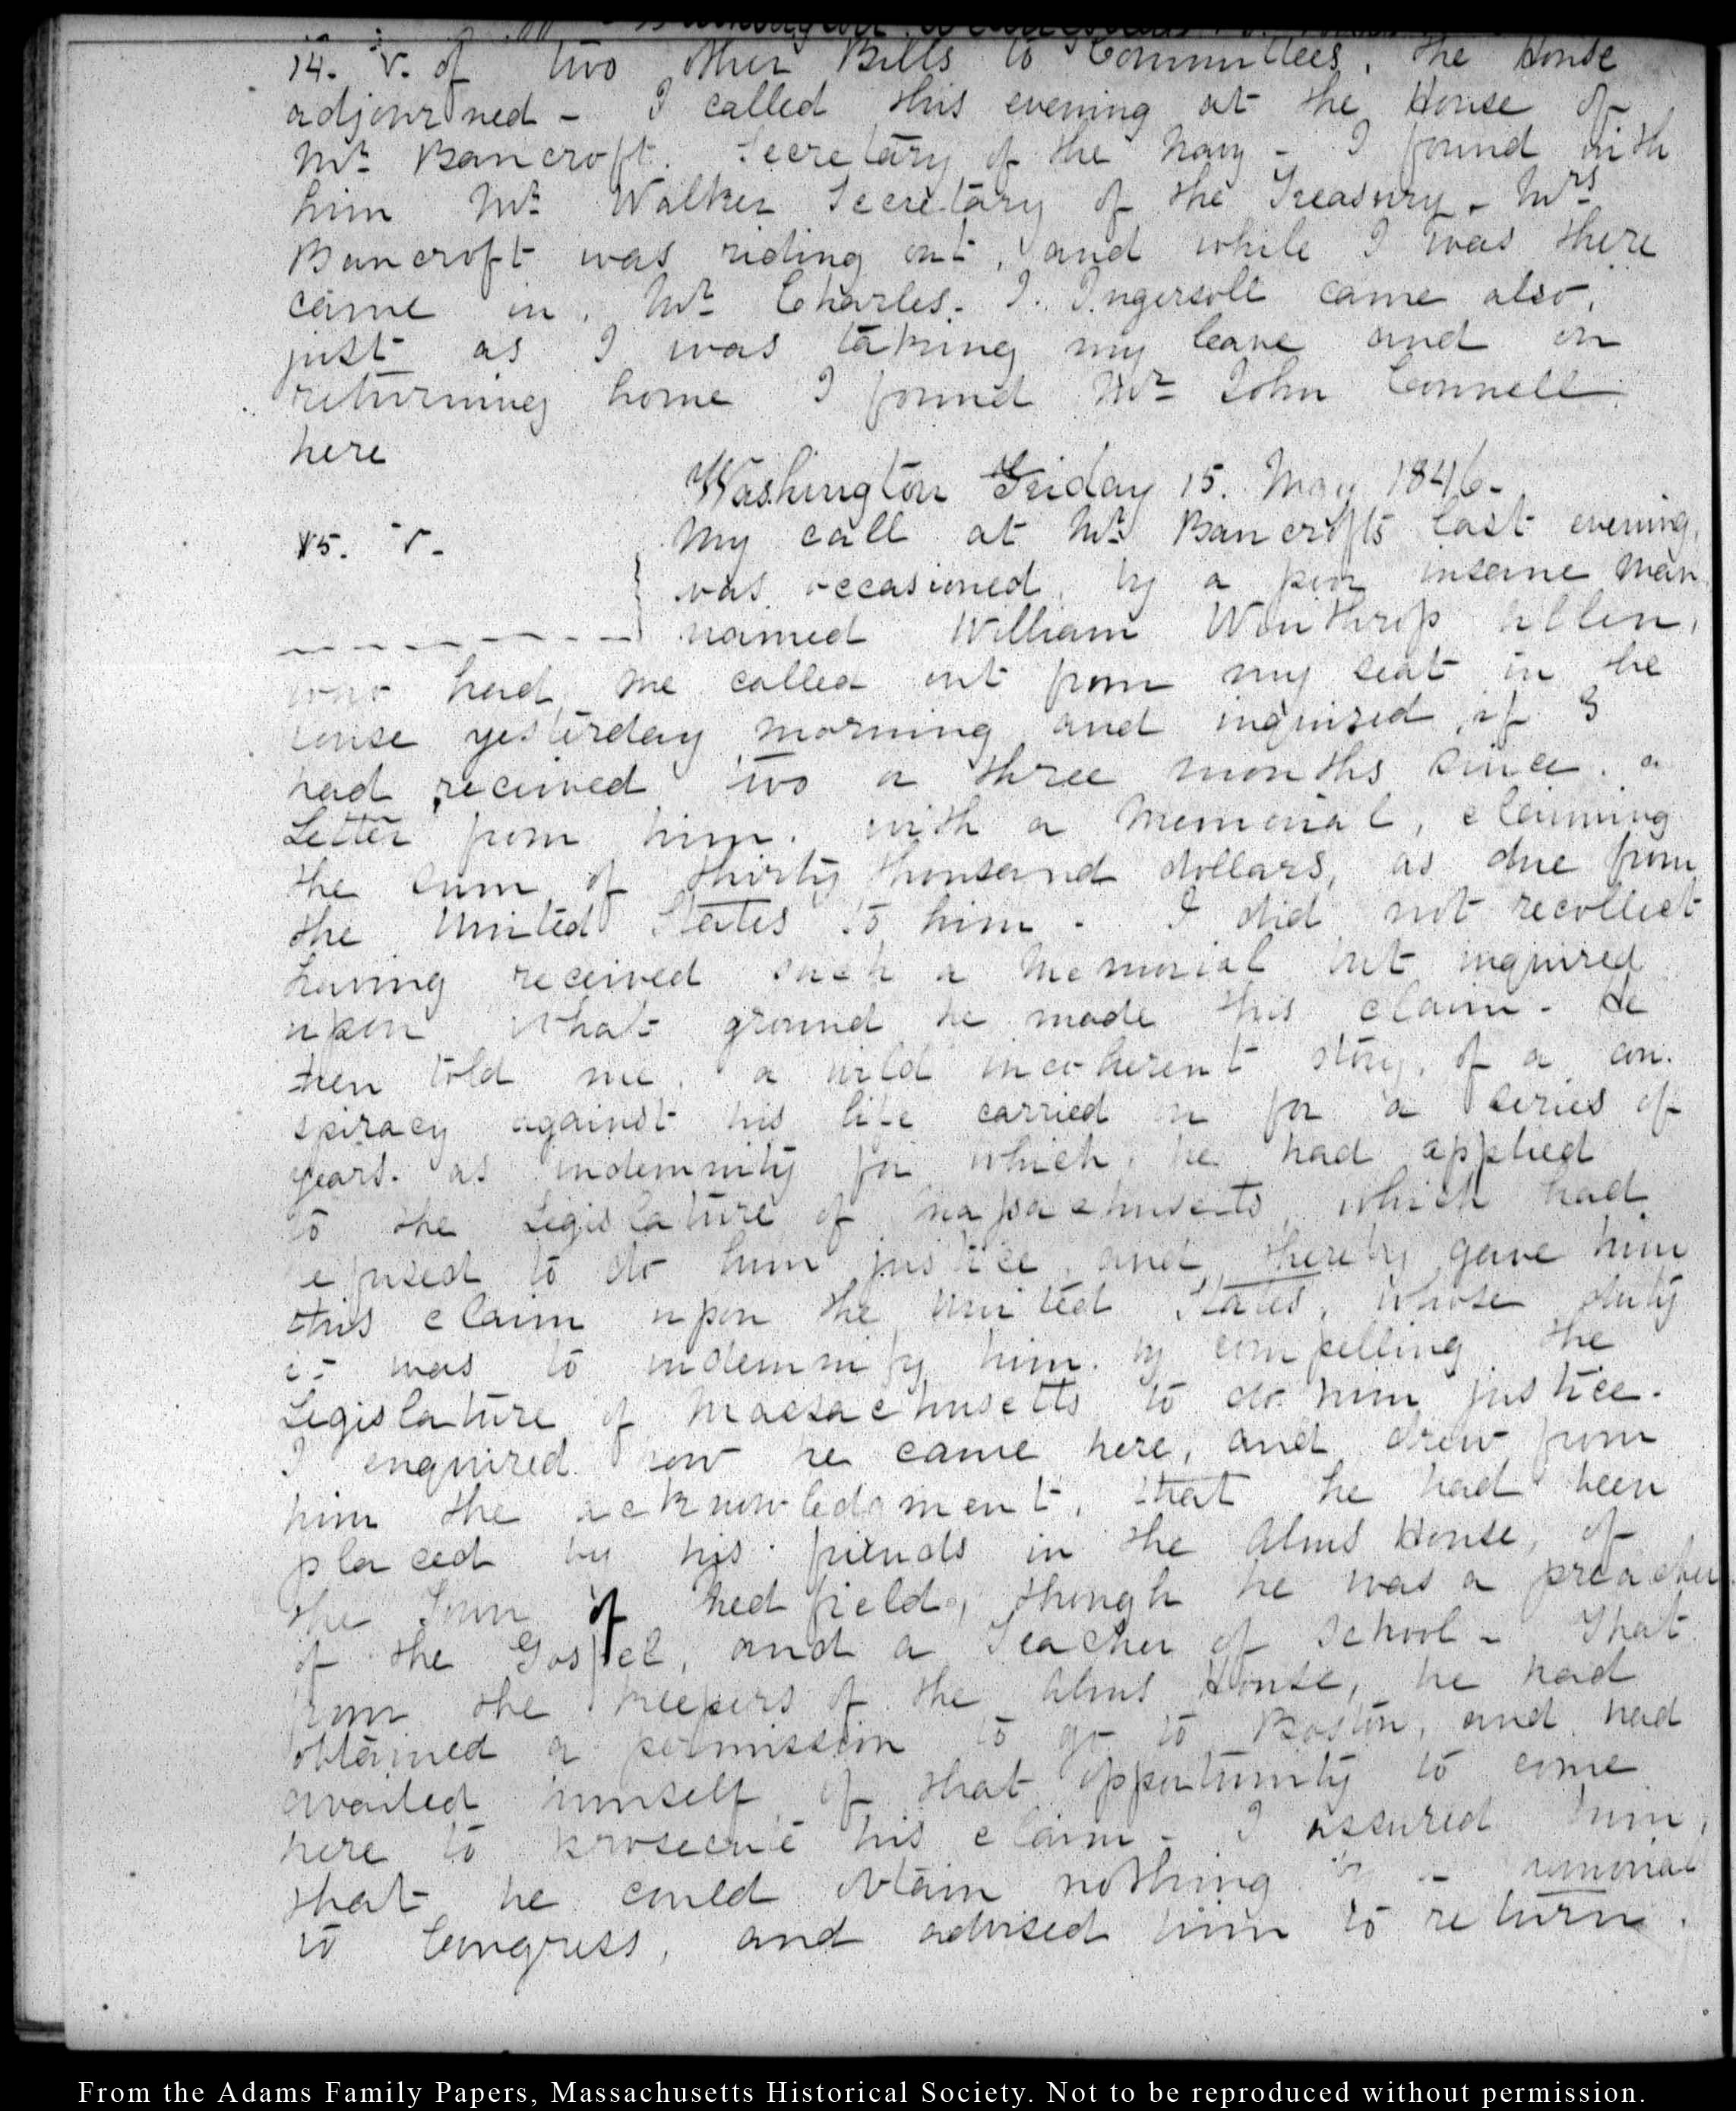 14. V. of two other Bills to Committees. The House
adjourned - I called this evening at the House of
Mr. Bancroft. Secretary of the Navy - I found with
him Mr. Walker Secretary of the Treasury - Mrs
Bancroft was riding out, and while I was there
came in. Mr. Charles. J. Ingersoll came also,
just as I was taking my leave and on
returning home I found Mr. John Connell
here
Washington Friday 15. May 1846-
15. V. My call at Mr. Bancrofts last evening,
was occasioned, by a poor insane man,
named William Winthrop Allen,
who had me called out from my seat in the
House yesterday morning and inquired, if I
had received two or three months since, a
Letter from him. with a Memorial, claiming
the sum of thirty thousand dollars, as due from
the United States to him - I did not recollect
having received such a Memorial but inquired
upon what ground he made this claim - He
then told me, a wild incoherent story, of a con-
spiracy against his life carried on for a series of
years. as indemnity for which, he had applied
to the Legislature of Massachusetts, which had
refused to do him justice, and thereby gave him
this claim upon the United States, whose duty
it was to indemnify him. by compelling the
Legislature of Massachusetts to do him justice.
I enquired how he came here, and drew from
him the acknowledgment, that he had been
placed by his friends in the Alms House, of
the Town of Medfield, though he was a preacher
of the Gospel, and a Teacher of School - That
from the keepers of the Alms House, he had
obtained a permission to go to Boston, and had
availed himself of that opportunity to come
here to prosecute his claim - I assured him,
that he could obtain nothing memorial
to Congress, and advised him to return.
From the Adams Family Papers, Massachusetts Historical Society. Not to be reproduced without permission.